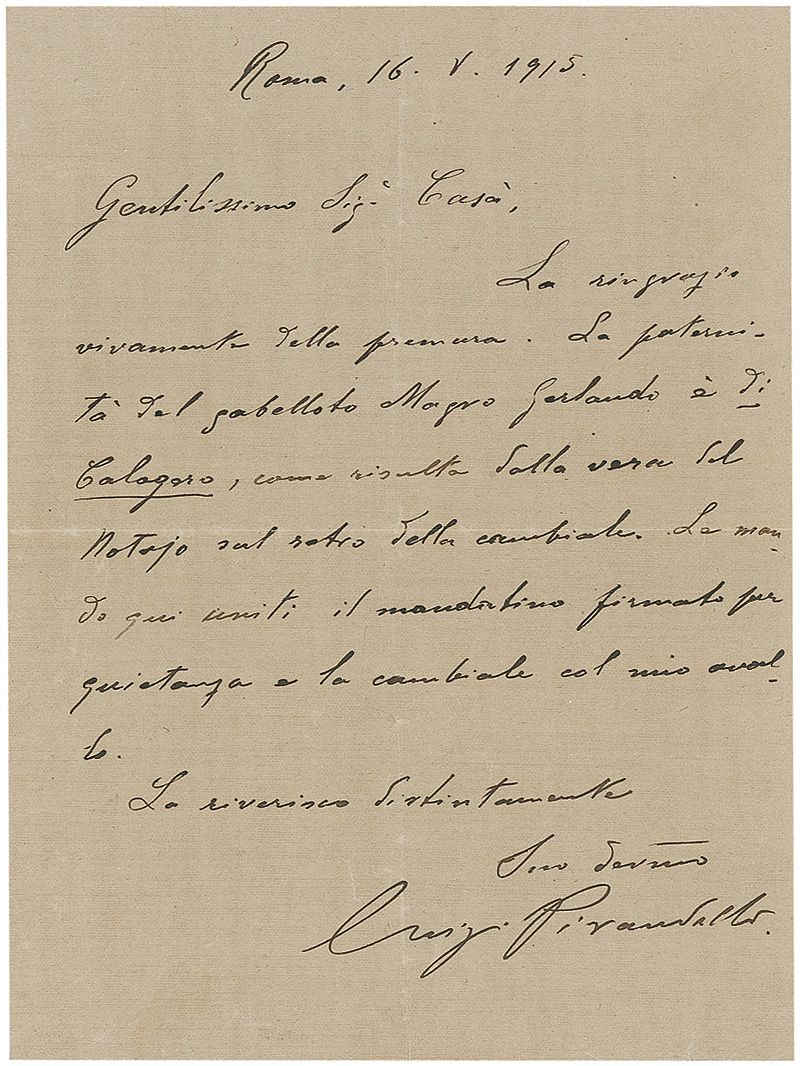 Roma, 16. V. 1915.
Gentilissimo Sigʳ Casà,
La ringrazio
vivamente della premura. La paterni-
tà del gabelloto Magro Gerlando è di
Calogero, come risulta dalla vera del
Notajo sul retro della cambiale. Le man-
do qui uniti il mandatino firmato per
quietanza e la cambiale col mio aval-
lo.
La riverisco distintamente
Suo devmo
Luigi Pirandello.